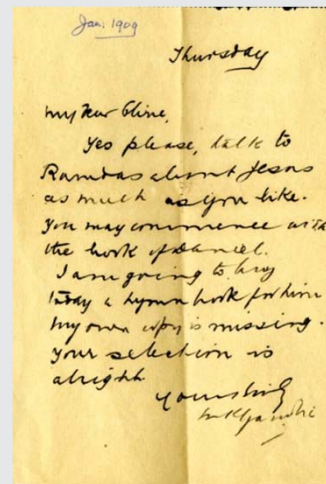 Jan. 1909
Thursday
My dear Olive,
Yes please, talk to
Ramdas about Jesus
as much as you like.
You may commence with
the book of Daniel.
I am going to buy
today a hymn book for him
My own copy is missing.
Your selection is
alright.
Yours truly
MKGandhi